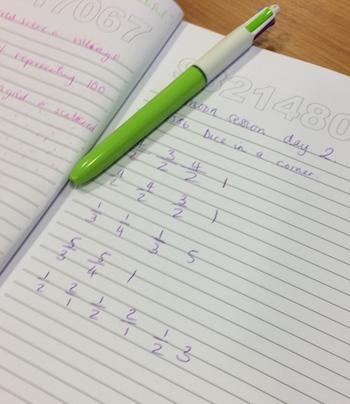 7067
were a village
representing 100
or scattered
21480
day 2
Dice in a corner
3/2 4/2 1
4/2 3/2 1
1/3 1/4 1/3 5
5/3 5/4 1
1/2 2/1 1/2 2/1 1/2 3